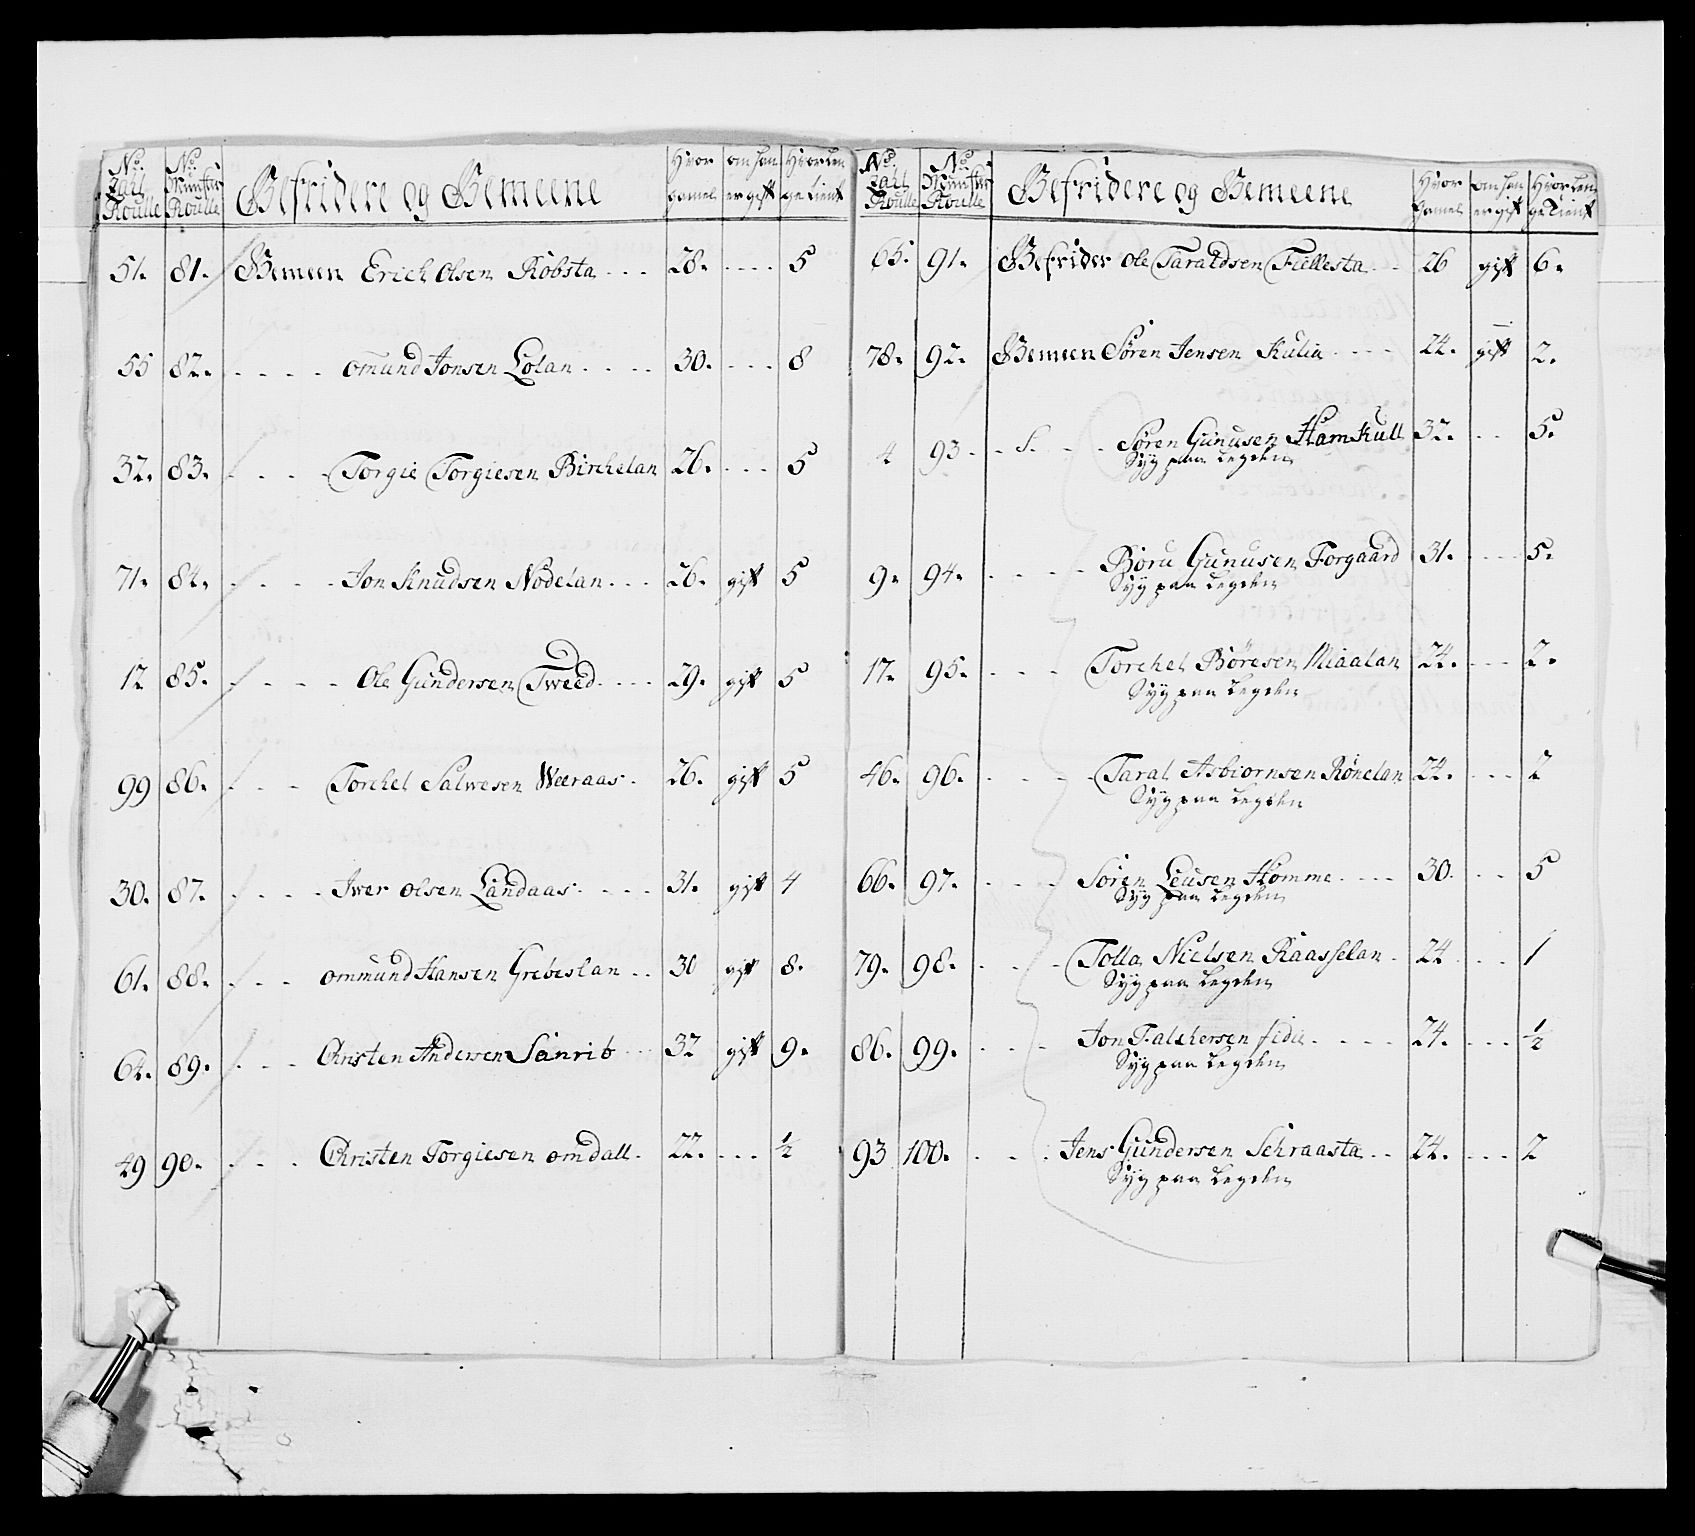 No. Zall Roulle | No. Munster Roulle | Befridere og Gemeene | Hvor gamel | om han er gift | Hvor længe tient
51. 81. Gemeen Erich Olsen Röbsta 28. 5
55 82. omund Jonsen Lölan 30. 8
32. 83. Torgie Torgiesen Birchelan 26. 5
71. 84. Jon Knudsen Nödelan 26. gift 5
12 85. Ole Gundersen Tweed 29. gift 5
99 86. Torchel Salwesen Weeraas 26. gift 5
30. 87. Iwer olsen Landaas 31. gift 4
61. 88. ommund Hansen Grebeslan 30 gift 8.
64. 89. Christen Andersen Sanrib 32 gift 9.
49 90. Christen Torgiesen omdall 22. ½
No. Zall Roulle | No. Munster Roulle | Befridere og Gemeene | Hvor gamel | om han er gift | Hvor længe tient
65. 91. Befrider Ole Taraldsen Fiellesta 26 gift 6.
78. 92. Gemeen Sören Jensen Kulia 24. gift 2.
4 93. S. Sören Gunusen Hamkull 32. 5.
Syg paa Legden
9. 94. Böru Gunusen Forgaard 31. 5.
Syg paa Legden
17. 95. Torchel Böresen Miaalan 24. 2.
Syg paa Legden
46. 96. Taral Asbiornsen Rönelan 24. 2
Syg paa Legden
66. 97. Sören Leusen Homme 30. 5
Syg paa Legden
79. 98. Tolla Nielsen Raasselan 24 1
Syg paa Legden
86. 99. Jon Falchersen fidie 24. ½
Syg paa Legden
93 100. Jens Gundersen Schraasta 24. 2
Syg paa Legden